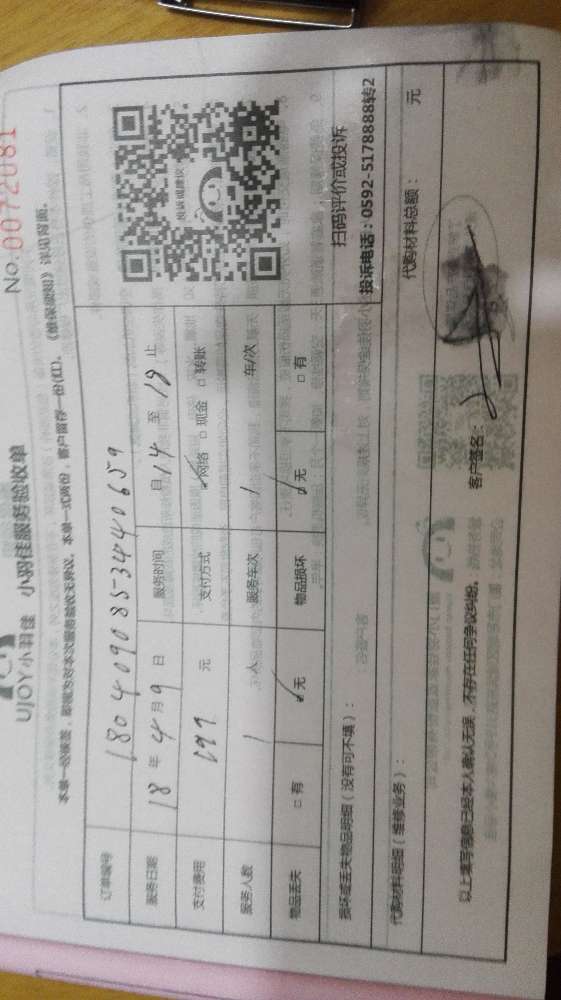 No.0072081
UJOY小羽佳 小羽佳服务验收单
本单一经接签，即视为对本次服务验收无异议。本单一式两份，客户留存一份(红)。《维保须知》详见背面。
订单编号 180409085-3440659
服务日期 18 年 4 月 9 日 服务时间 自 14 至 19 止
支付费用 199 元 支付方式 ☑网络 □现金 □转账
服务人数 1 人 服务车次 1 车/次
物品丢失 □有 ☑无 物品损坏 ☑无 □有
投诉或建议
扫码评价或投诉
投诉电话：0592-5178888转2
损坏或丢失物品明细（没有可不填）：
代购材料明细（维修业务）： 代购材料总额： 元
以上填写信息已经本人确认无误，不存在任何争议纠纷。 客户签名：